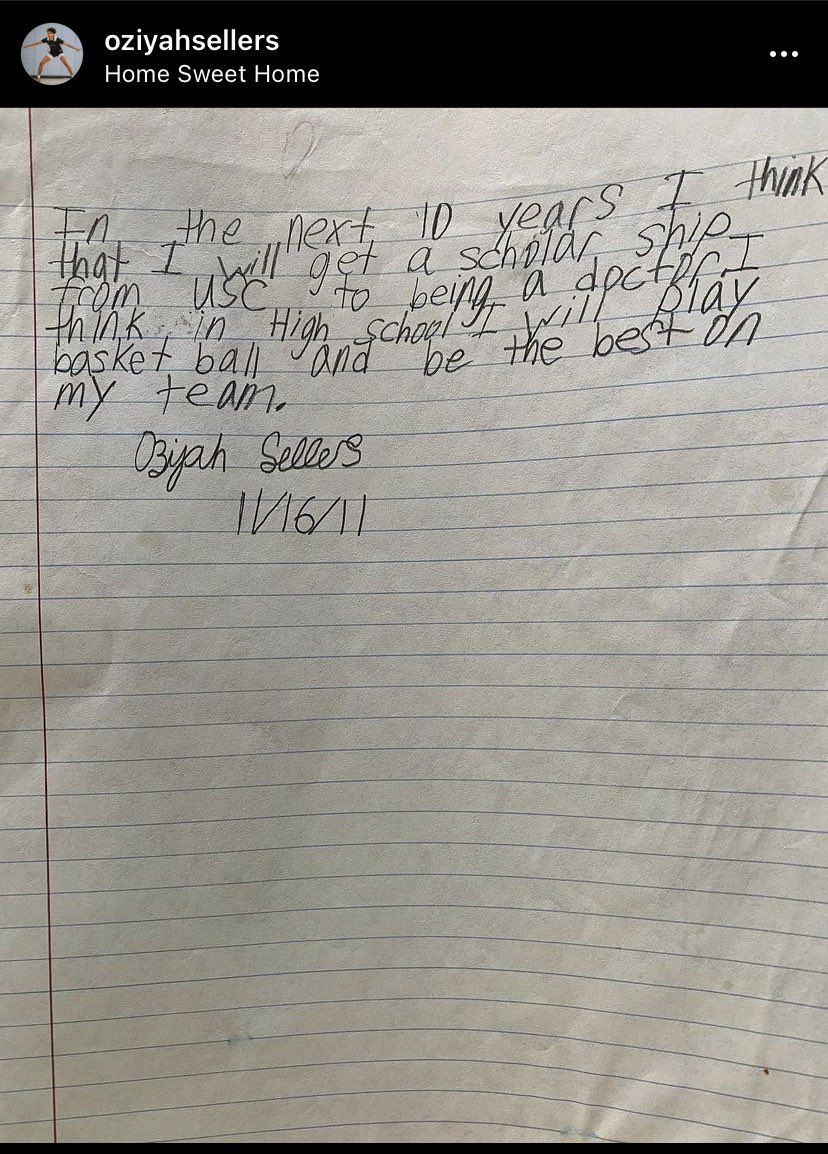 oziyahsellers
Home Sweet Home
In the next 10 years I think
that I will get a scholar ship
from USC to being a doctor. I
think in High school I will play
basket ball and be the best on
my team.
Oziyah Sellers
11/16/11